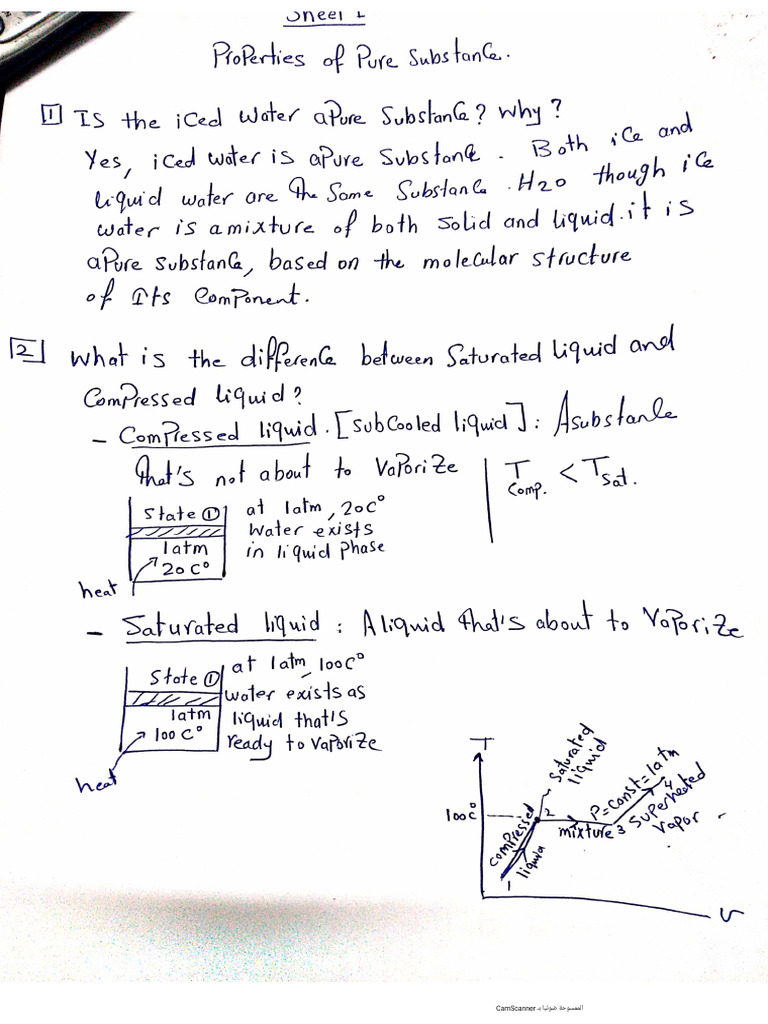 Sheet
Properties of Pure Substance.
1 Is the iced water a Pure Substance? Why?
Yes, iced water is a Pure Substance. Both ice and
liquid water are the Same Substance. H2O though ice
water is a mixture of both Solid and liquid. it is
a Pure substance, based on the molecular structure
of Its Component.
2 What is the difference between Saturated liquid and
Compressed liquid?
- Compressed liquid. [Subcooled liquid]: A substance
that's not about to Vaporize
T comp. < T sat.
State 1
1atm
20 C°
heat
at 1atm, 20C°
water exists
in liquid phase
- Saturated liquid : A liquid that's about to Vaporize
State 1
1atm
100 C°
heat
at 1atm, 100C°
water exists as
liquid that's
ready to vaporize
T
100C°
compressed
liquid
1
2
Saturated
liquid
mixture
3
P=Const=1atm
4
Superheated
Vapor
v
الممسوحة ضوئيا بـ CamScanner